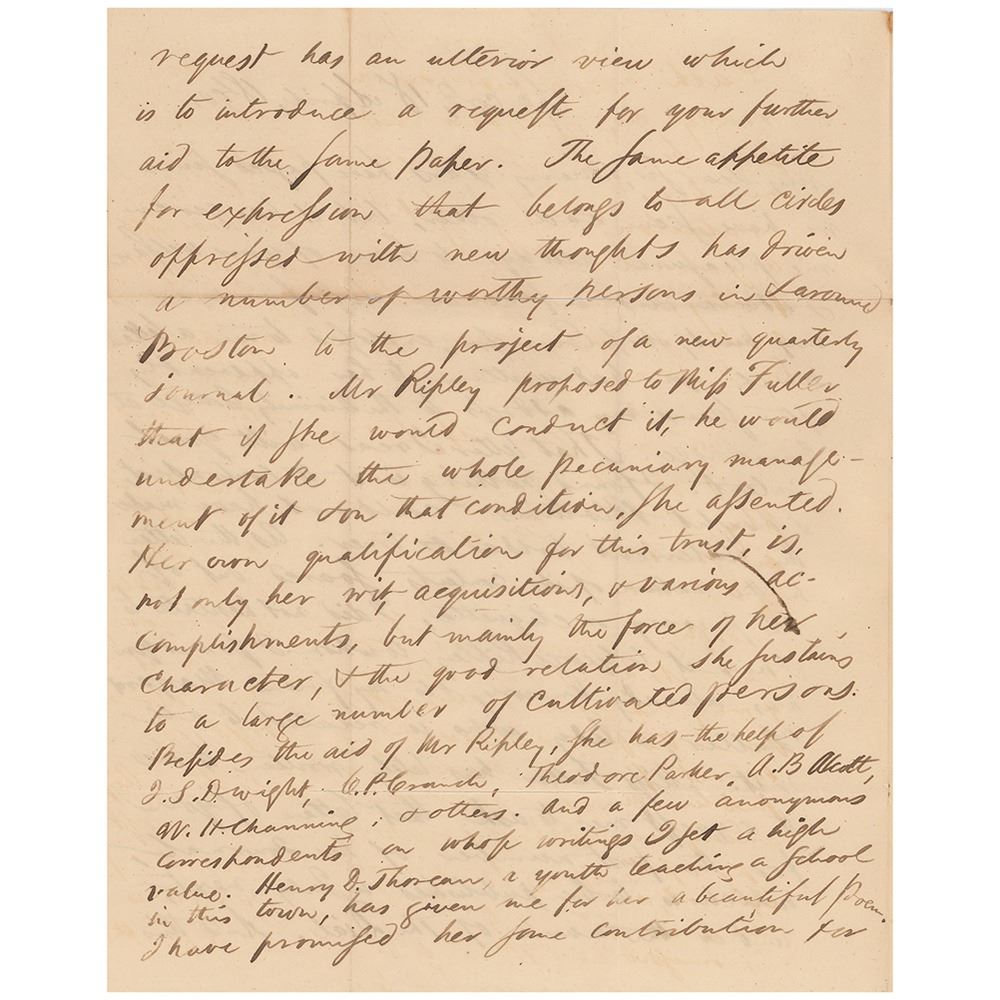 request has an ulterior view which
is to introduce a request for your further
aid to the same Paper. The same appetite
for expression that belongs to all circles
oppressed with new thoughts has driven
a number of worthy persons in & around
Boston to the project of a new quarterly
journal. Mr Ripley proposed to Miss Fuller
that if she would conduct it, he would
undertake the whole pecuniary manage-
ment of it & on that condition, she assented.
Her own qualification for this trust, is,
not only her wit, acquisitions, & various ac-
complishments, but mainly the force of her
character, & the good relation she sustains
to a large number of cultivated persons.
Besides the aid of Mr Ripley, she has the help of
J. S. Dwight, C. P. Cranch, Theodore Parker, A. B Alcott,
W. H Channing; & others. And a few anonymous
correspondents on whose writings I set a high
value. Henry D. Thoreau, a youth teaching a School
in this town, has given me for her a beautiful Poem.
I have promised her some contribution for